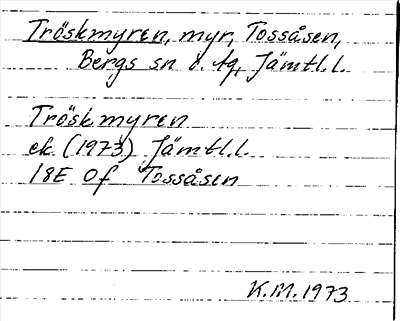 Tröskmyren, myr, Tossåsen,
Bergs sn o. tg, Jämtl.l.
Tröskmyren
ek. (1973) Jämtl.l.
18E 0f Tossåsen
K.M. 1973